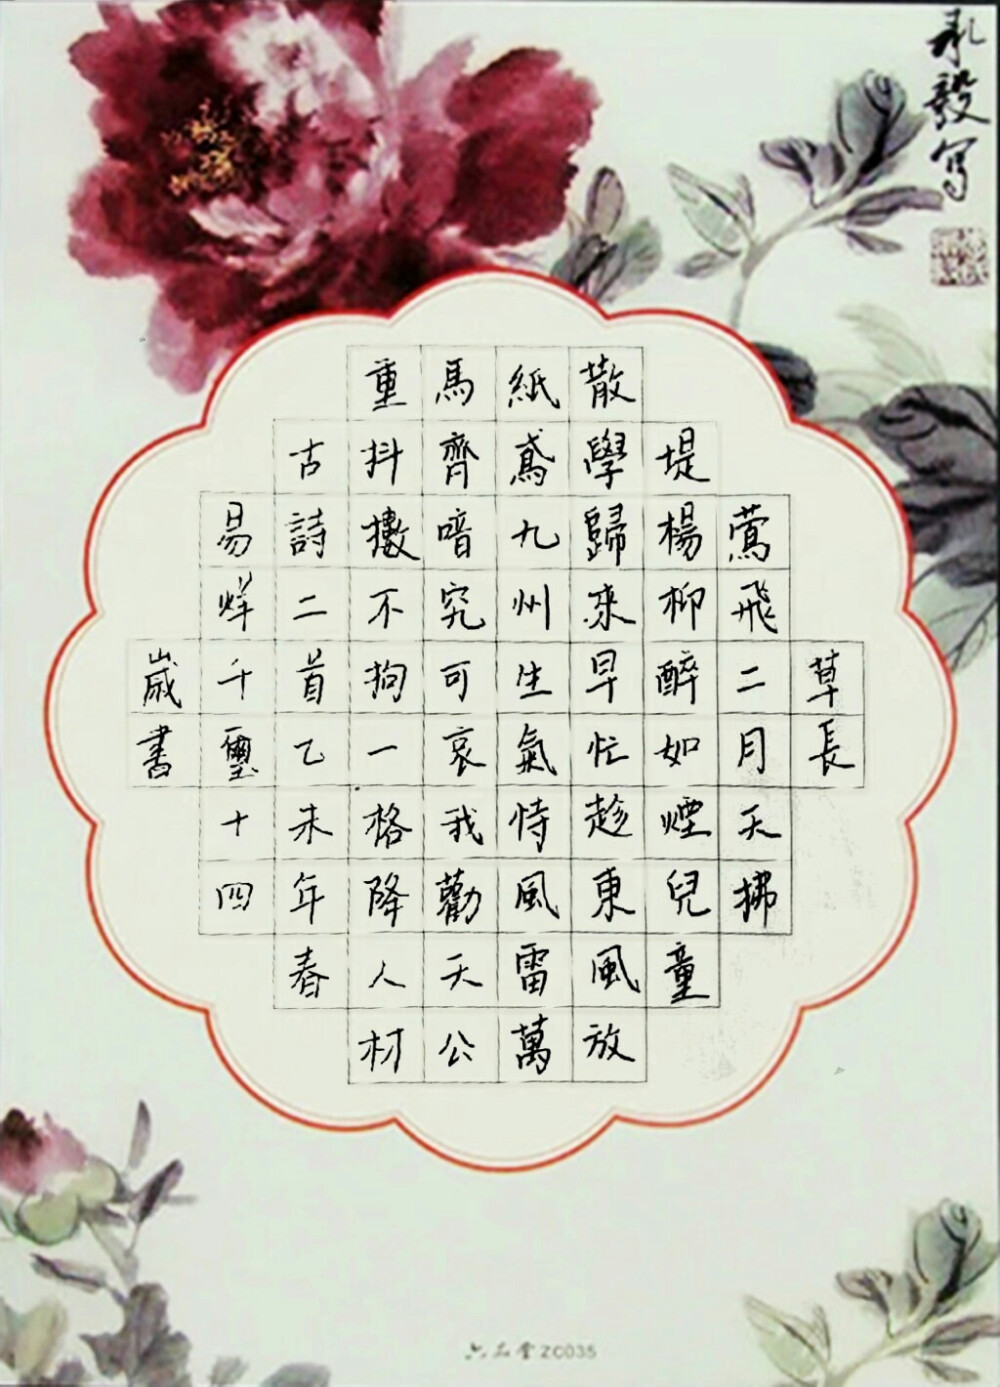 草長
莺飛二月天拂
堤楊柳醉如煙兒童
散學歸來早忙趁東風放
紙鳶九州生氣恃風雷萬
馬齊喑究可哀我勸天公
重抖擻不拘一格降人材
古詩二首乙未年春
易烊千璽十四
歲書
承毅写
六品堂 ZC035